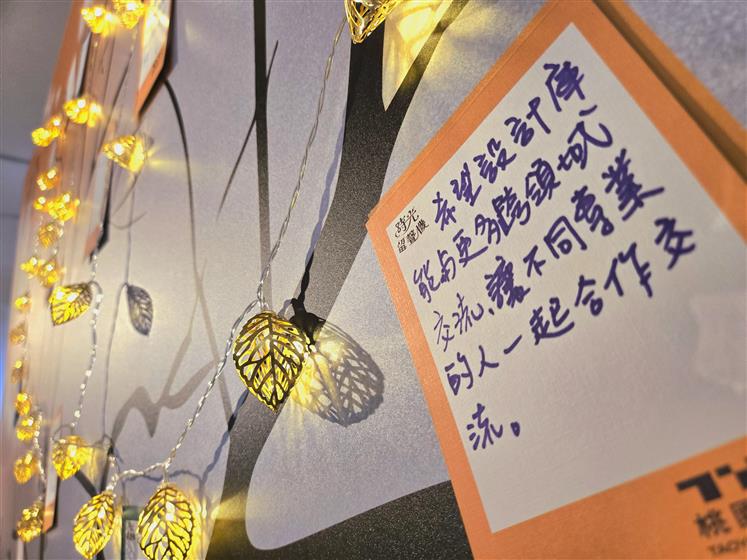 時光
留聲機
希望設計庫
能與更多跨領域
交流、讓不同專業
的人一起合作交
流。
桃園
TAOY